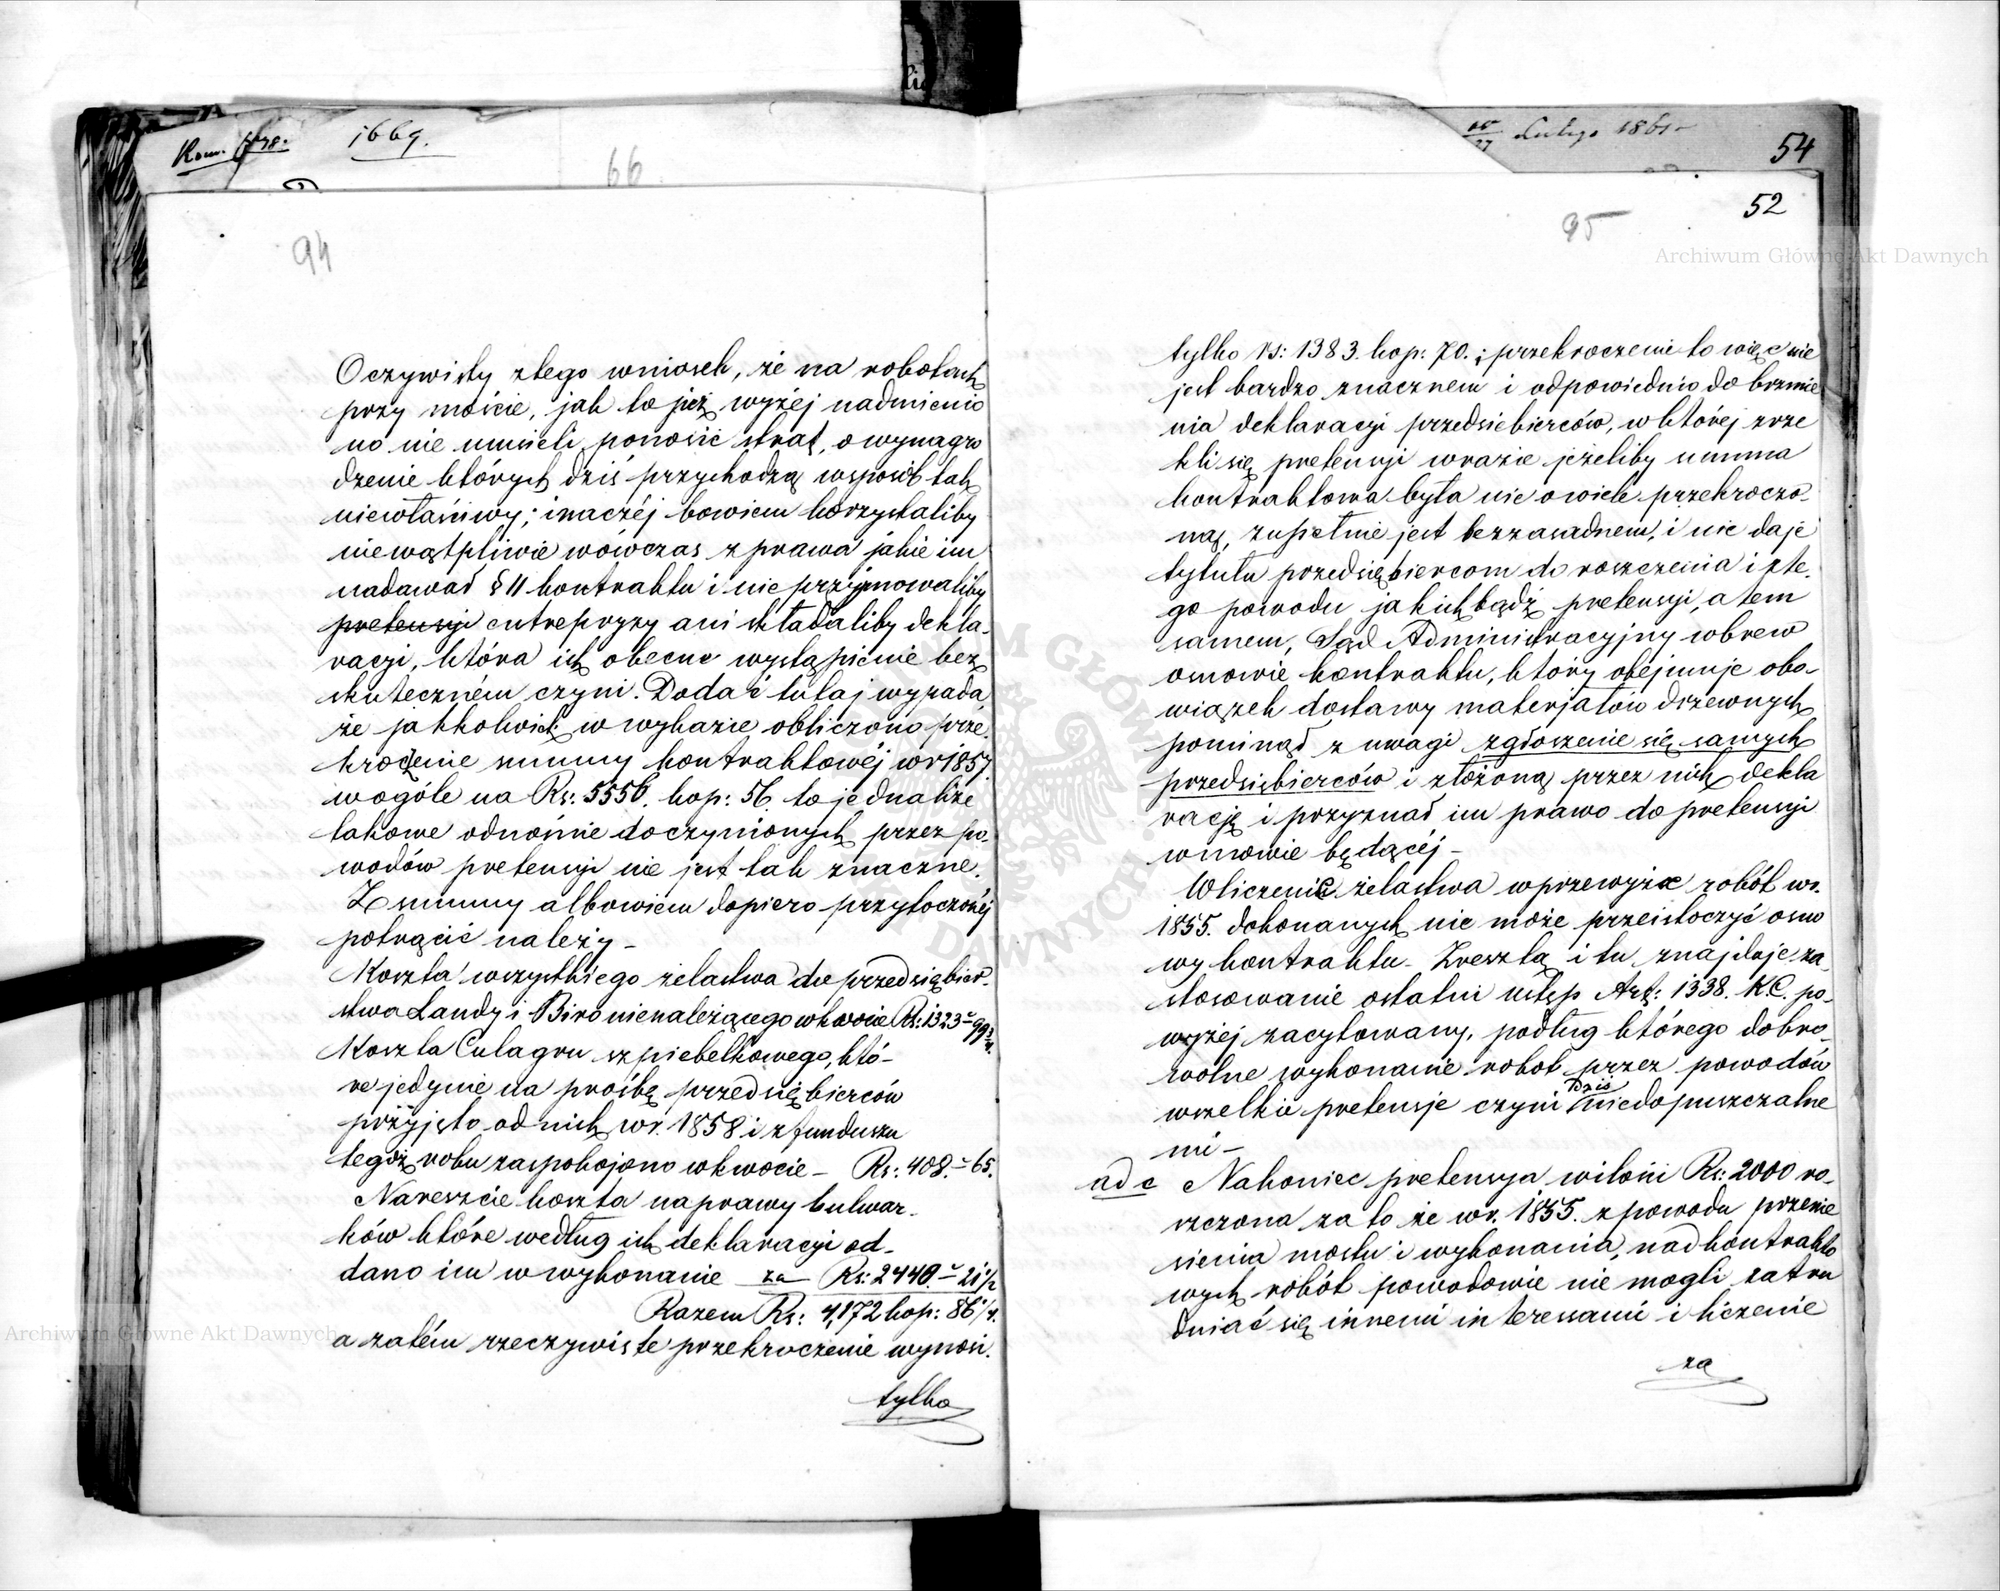 1669.
66
Lutego 1861
54
52
94
95
Oczywisty ztego wniosek, że na robotach
przy moście, jak to już wyżej nadmienio
no nie musieli ponosić strat, o wynagro
dzenie których dziś przychodzą wsposób tak
niewłaściwy; inaczéj bowiem korzystaliby
niewątpliwie wówczas z prawa jakie im
nadawał § 11 kontraktu i nie przyjmowaliby
pretensyi entrepryzy ani składaliby dekla-
racyi, która ich obecne wystąpienie bez
skuteczném czyni. Dodać tutaj wypada,
że jakkolwiek w wykazie obliczono prze-
kroczenie summy kontraktowéj w r 1857.
wogóle na Rs: 5556. kop: 56 to jednakże
takowe odnośnie do czynionych przez po-
wodów pretensyi nie jest tak znaczne.
Z summy albowiem dopiero przytoczonéj
potrącić należy –
Koszta wszystkiego żelastwa do przedsiębier-
stwa Landy i Biro nienależącego w kwocie Rs: 1323 " 99 3/4.
Koszta Culagru szpiebelkowego, któ-
re jedynie na prośbę przedsiębierców
przyjęto od nich w r. 1858 i z funduszu
tegoż roku zaspokojono w kwocie – Rs: 408. " 65.
Nareszcie koszta naprawy bulwar-
ków które według ich deklaracyi od-
dano im w wykonanie za Rs: 2440. " 21 1/2
Razem Rs: 4,172 kop: 86 1/4.
a zatém rzeczywiste przekroczenie wynosi.
tylko
tylko rs: 1383. kop: 70.; przekroczenie to więc nie
jest bardzo znacznem i odpowiednio do brzmie
nia deklaracyi przedsiebierców, w któréj zrze
kli się pretensyi wrazie jeżeliby summa
kontraktowa była nie o wiele przekroczo-
ną, zupełnie jest bezzasadnem, i nie daje
tytułu przedsiębiercom do roszczenia i zte-
go powodu jakichbądź pretensyi, a tem
samem, Sąd Administracyjny wbrew
osnowie kontraktu, który obejmuje obo-
wiązek dostawy materjałów drzewnych
pominął z uwagi zgłoszenie się samych
przedsiębierców i złożoną przez nich dekla
rację i przyznał im prawo do pretensyi
wmowie będącéj –
Wliczenie żelastwa wprzewyżce robót w r.
1855. dokonanych nie może przeistoczyć osno
wy kontraktu. Zresztą i tu znajduje za-
stosowanie ostatni ustęp Art: 1338. K.C. po-
wyżéj zacytowany, podług którego dobro-
wolne wykonanie robot przez powodów
wszelkie pretensje czyni dziś niedopuszczalne
mi –
ad c Nakoniec pretensya wilości Rs: 2000 ro-
szczona za to że w r. 1855. z powodu przenie
sienia mostu i wykonania, nadkontrakto
wych robót powodowie nie mogli zatru
dniać się innemi interessami i liczenie
za
Archiwum Główne Akt Dawnych
Archiwum Główne Akt Dawnych